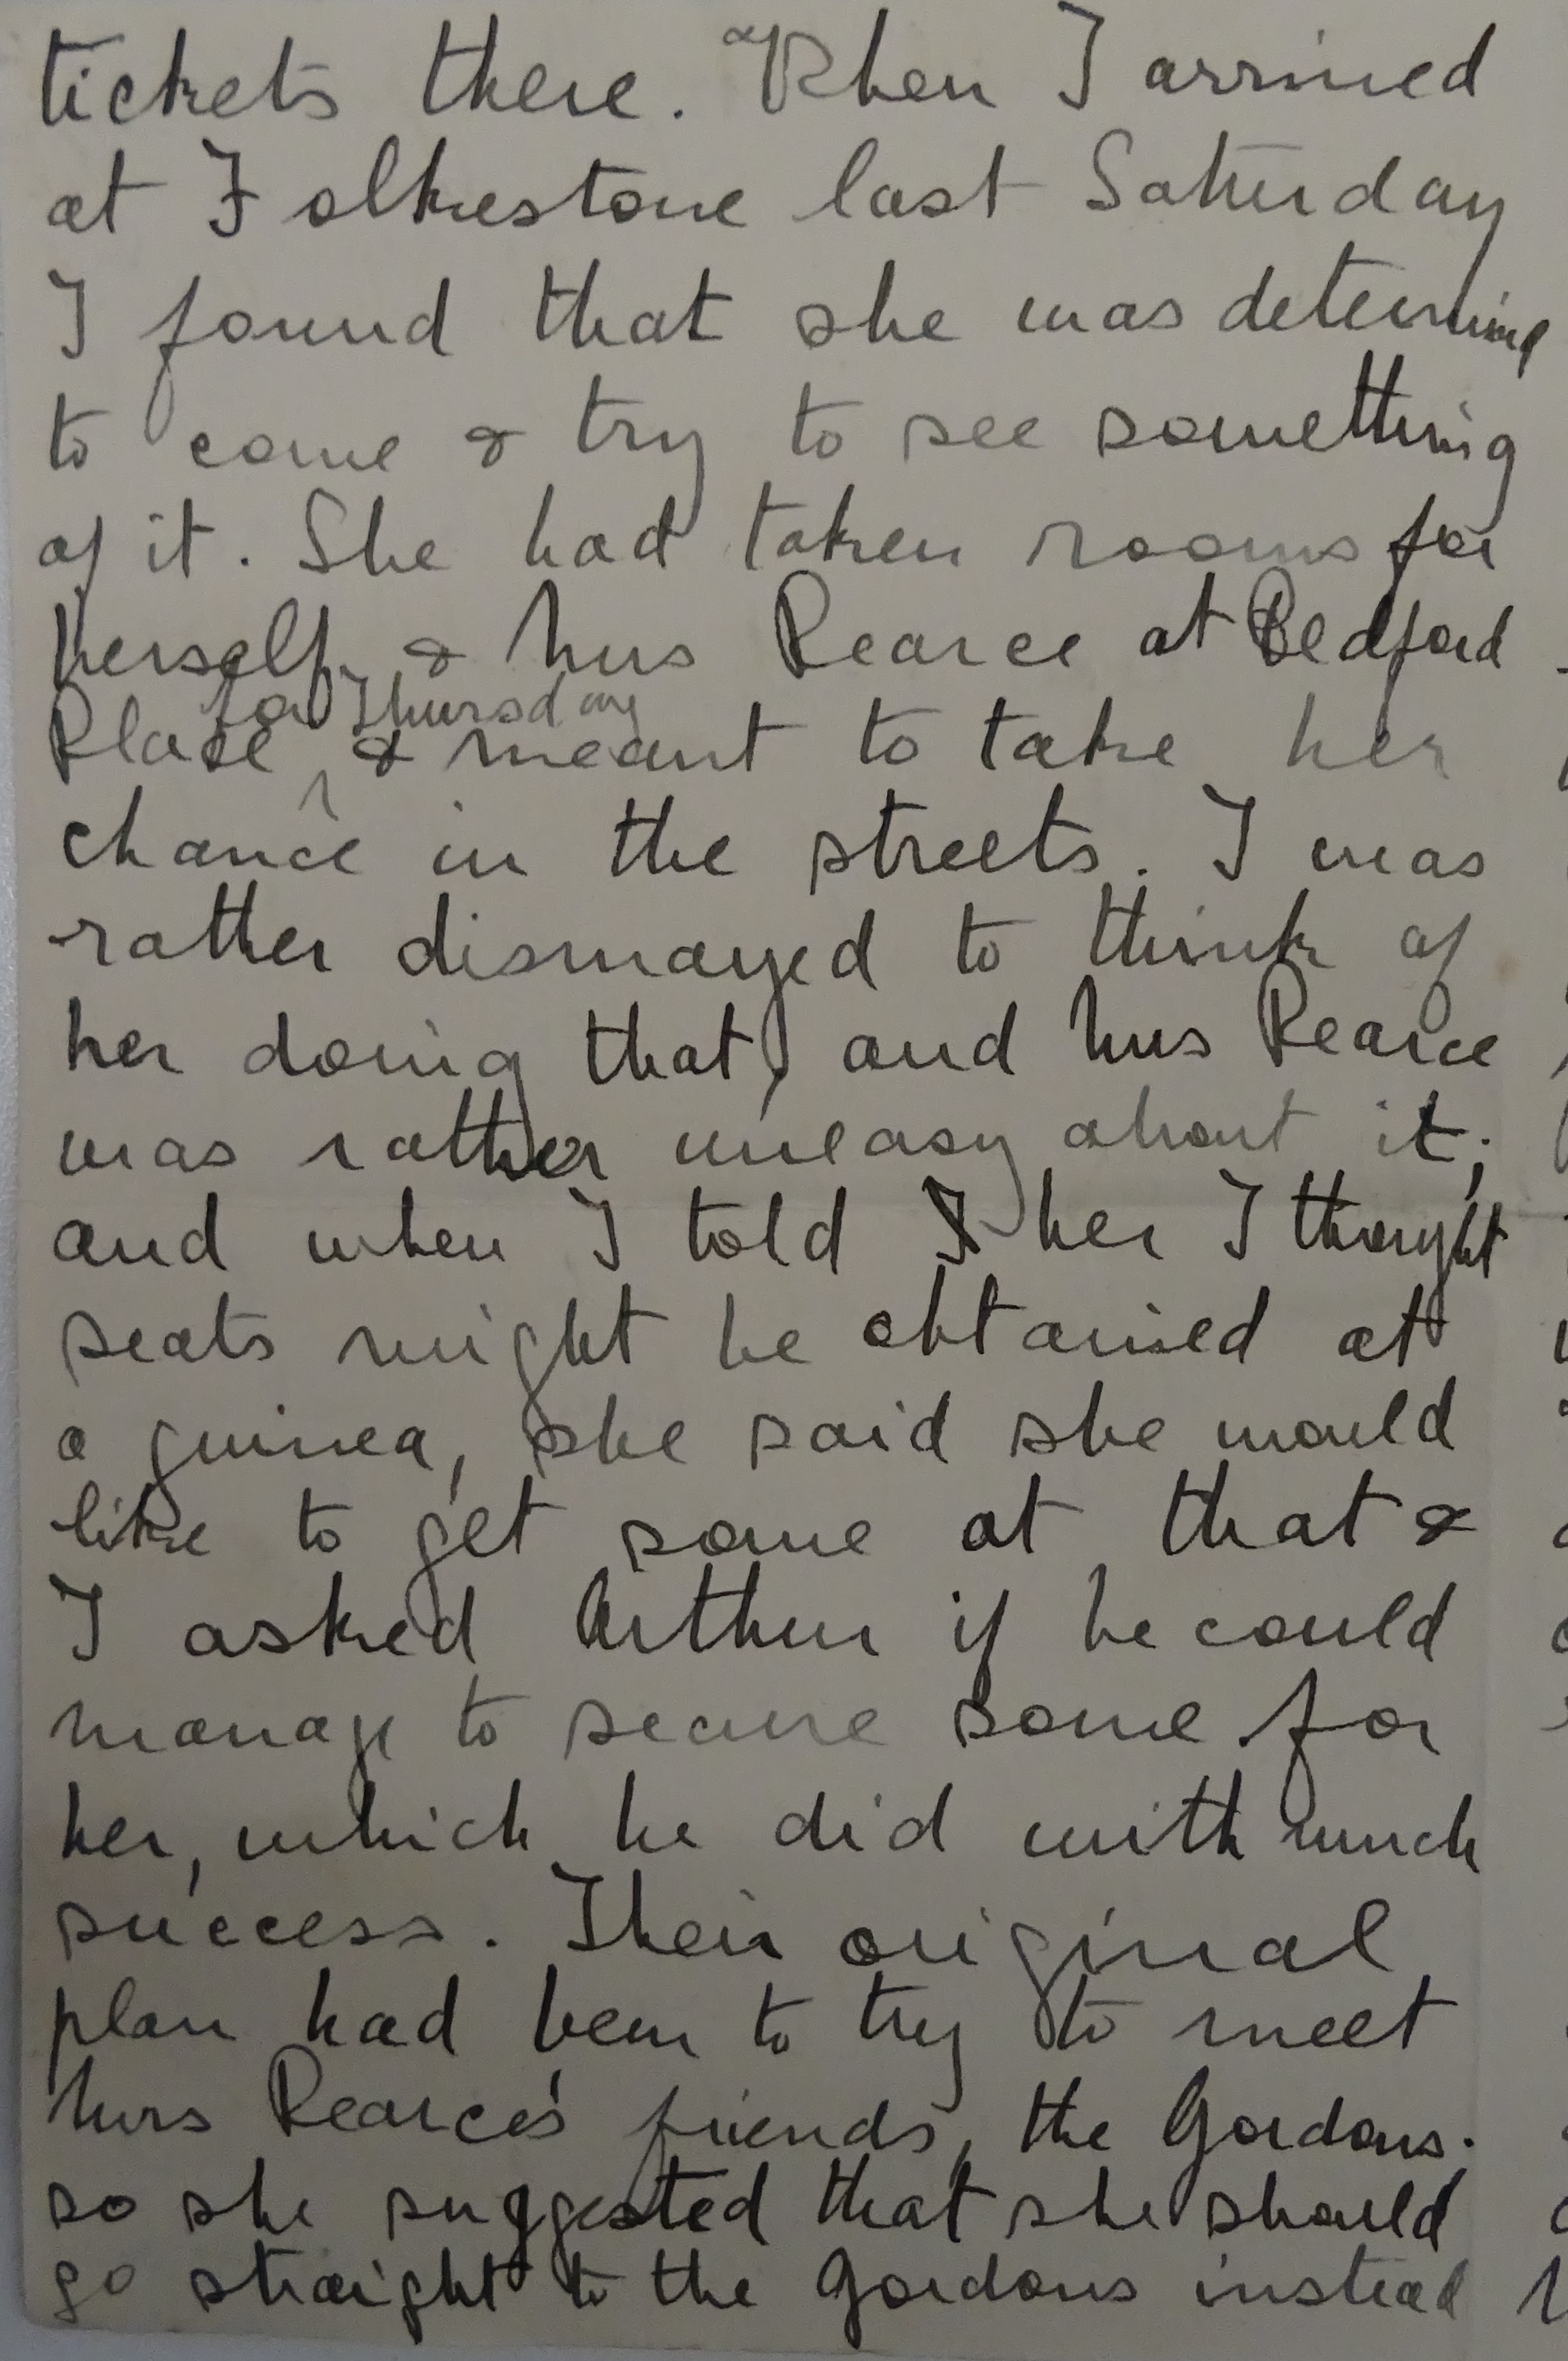 tickets there. When I arrived
at Folkestone last Saturday
I found that she was determined
to come & try to see something
of it. She had taken rooms for
herself & Mrs Pearce at Bedford
for Thursday
Place, & meant to take her
chance in the streets. I was
rather dismayed to think of
her doing that, and Mrs Pearce
was rather uneasy about it;
and when I told I her I thought
seats might be obtained at
a guinea, she said she would
like to get some at that &
I asked Arthur if he could
manage to secure some for
her, which he did with much
success. Their original
plan had been to try to meet
Mrs Pearce's friends, the Gordons.
so she suggested that she should
go straight to the Gordons instead